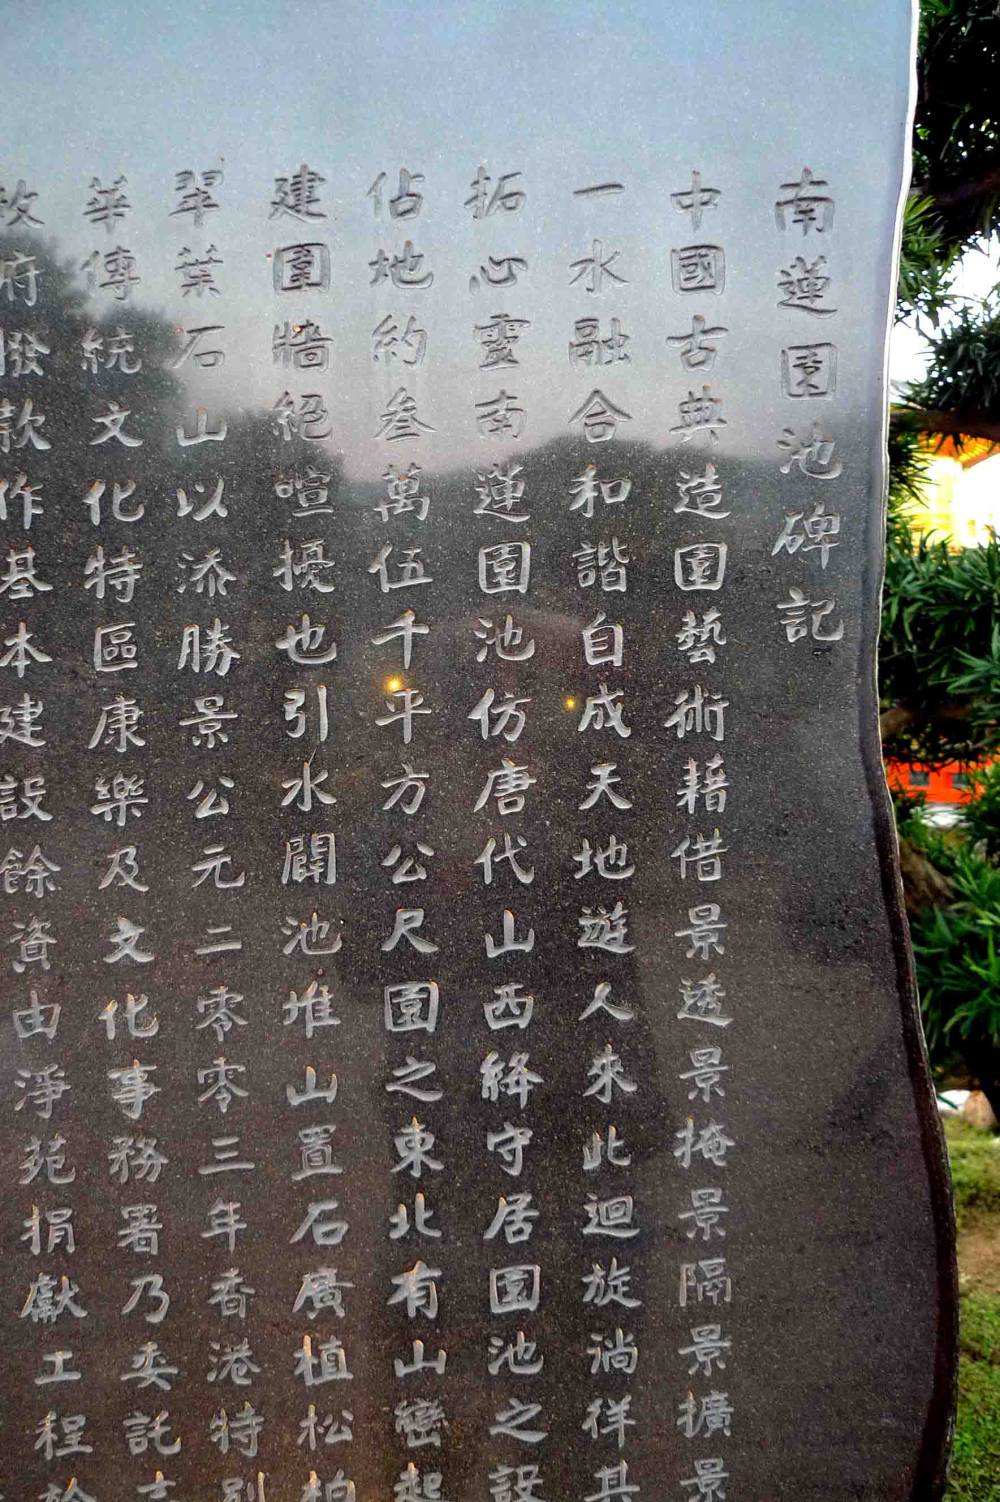 南蓮園池碑記
中國古典造園藝術藉借景透景掩景隔景擴景
一水融合和諧自成天地遊人來此迴旋淌徉其
拓心靈南蓮園池仿唐代山西絳守居園池之設
佔地約叁萬伍千平方公尺園之東北有山巒起
建圍牆絕喧擾也引水闢池堆山置石廣植松柏
翠葉石山以添勝景公元二零零三年香港特別
華傳統文化特區康樂及文化事務署乃委託志
政府撥款作基本建設餘資由淨苑捐獻工程於